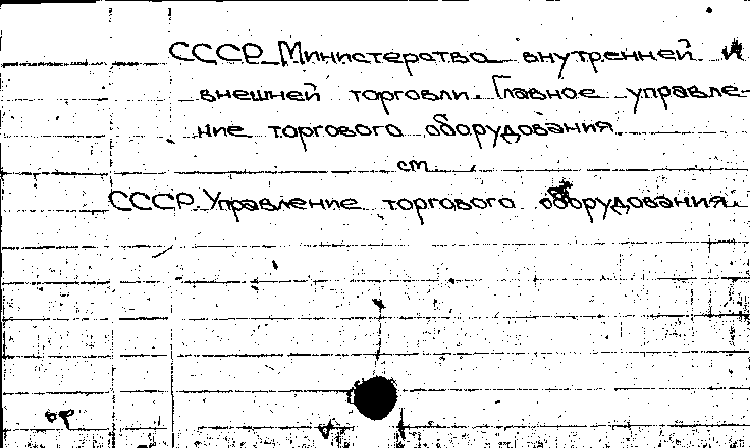 СССР. Министерство внутренней и
внешней торговли. Главное управле-
ние торгового оборудования.
см
СССР. Управление торгового оборудования.
ор